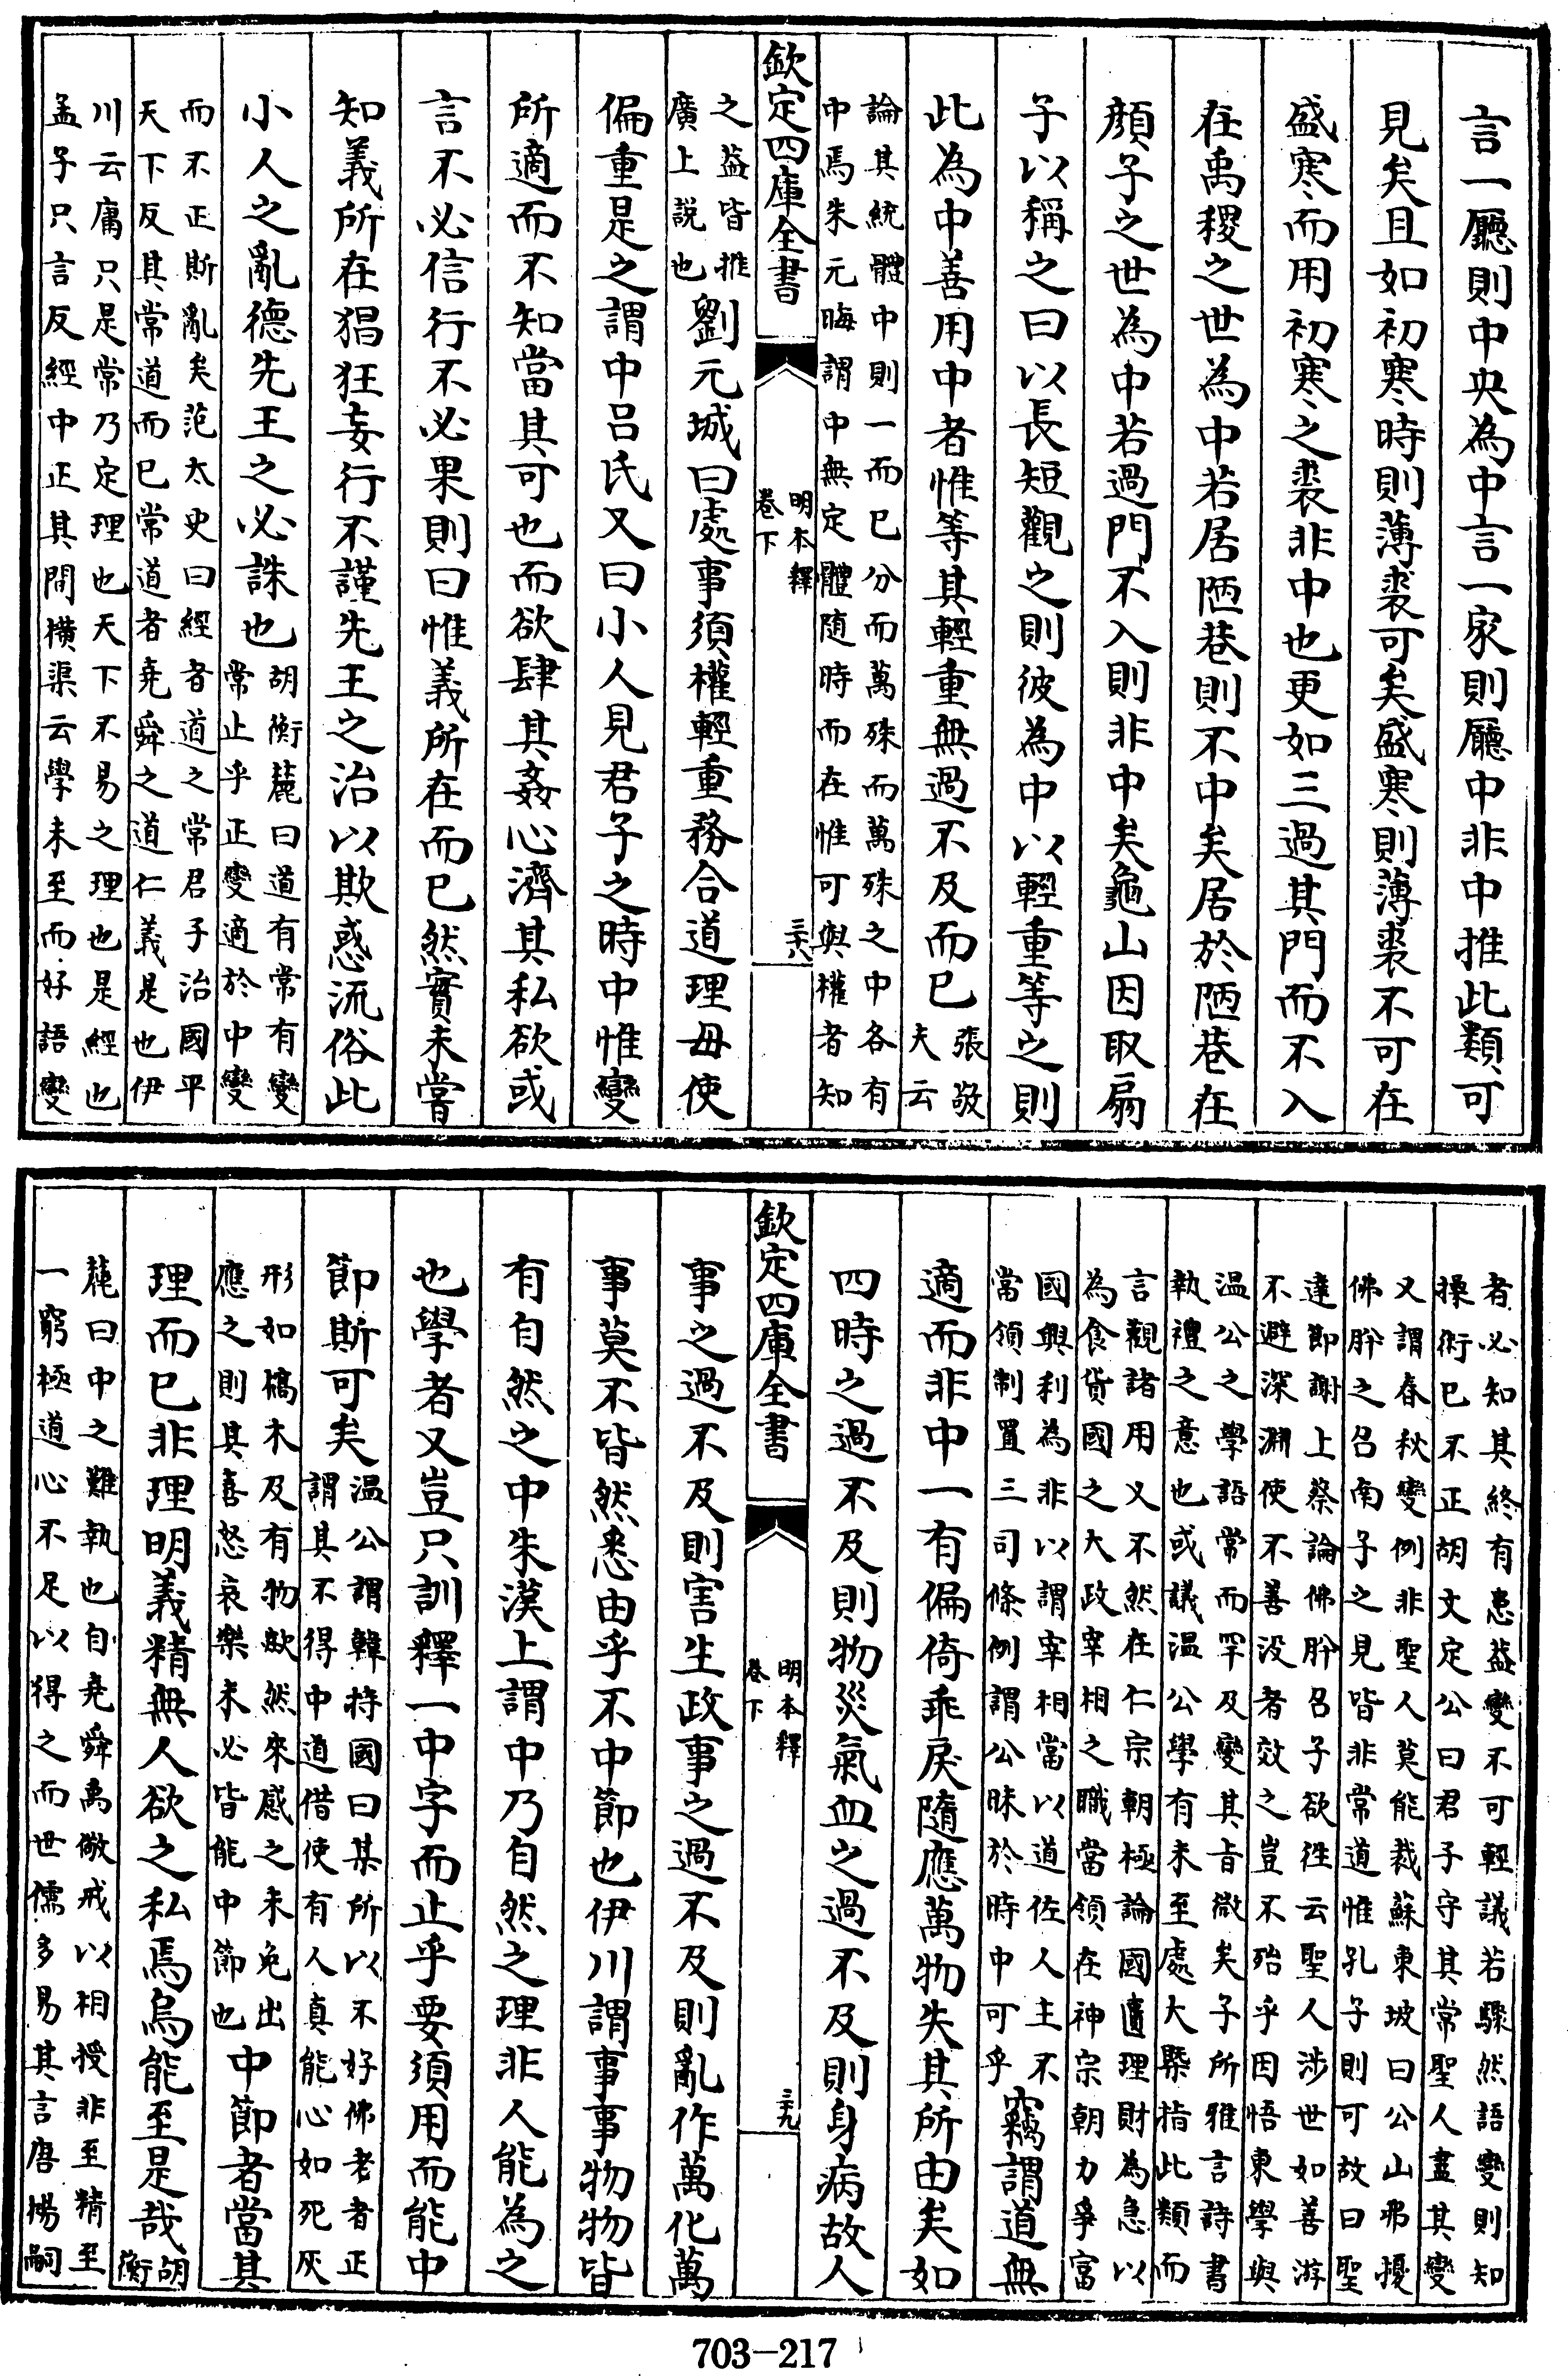 言一廳則中央為中言一家則廳中非中推此類可
見矣且如初寒時則薄裘可矣盛寒則薄裘不可在
盛寒而用初寒之裘非中也更如三過其門而不入
在禹稷之世為中若居陋巷則不中矣居於陋巷在
顏子之世為中若過門不入則非中矣龜山因取扇
子以稱之曰以長短觀之則彼為中以輕重等之則
此為中善用中者惟等其輕重無過不及而已
張敬
夫云
論其統體中則一而已分而萬殊而萬殊之中各有
中焉朱元晦謂中無定體隨時而在惟可與權者知
欽定四庫全書
明本釋
卷下
三十八
之益皆推
廣上説也
劉元城曰處事須權輕重務合道理毋使
偏重是之謂中吕氏又曰小人見君子之時中惟變
所適而不知當其可也而欲肆其姦心濟其私欲或
言不必信行不必果則曰惟義所在而已然實未嘗
知義所在猖狂妄行不謹先王之治以欺惑流俗此
小人之亂德先王之必誅也
胡衡麓曰道有常有變
常止乎正變適於中變
而不正斯亂矣范太史曰經者道之常君子治國平
天下反其常道而已常道者堯舜之道仁義是也伊
川云庸只是常乃定理也天下不易之理也是經也
孟子只言反經中正其間橫渠云學未至而好語變
者必知其終有患益變不可輕議若驟然語變則知
操術已不正胡文定公曰君子守其常聖人盡其變
又謂春秋變例非聖人莫能裁蘇東坡曰公山弗擾
佛肸之召南子之見皆非常道惟孔子則可故曰聖
達節謝上蔡論佛肸召子欲徃云聖人涉世如善游
不避深淵使不善没者效之豈不殆乎因悟東學與
温公之學語常而罕及變其旨微矣子所雅言詩書
執禮之意也或議温公學有未至處大槩指此類而
言觀諸用乂不然在仁宗朝極論國𨗇理財為急以
為食貨國之大政宰相之職當領在神宗朝力爭富
國興利為非以謂宰相當以道佐人主不
常領制置三司條例謂公昧於時中可乎
竊謂道無
適而非中一有偏倚乖戾隨應萬物失其所由矣如
四時之過不及則物災氣血之過不及則身病故人
欽定四庫全書
明本釋
卷下
三十九
事之過不及則害生政事之過不及則亂作萬化萬
事莫不皆然悉由乎不中節也伊川謂事事物物皆
有自然之中朱漢上謂中乃自然之理非人能為之
也學者又豈只訓釋一中字而止乎要須用而能中
節斯可矣
温公謂韓持國曰某所以不好佛老者正
謂其不得中道借使有人真能心如死灰
形如槁木及有物歘然來感之未免出
應之則其喜怒哀樂未必皆能中節也
中節者當其
理而已非理明義精無人欲之私焉烏能至是哉
胡
衡
麓曰中之難執也自堯舜禹儆戒以相授非至精至
一窮極道心不足以得之而世儒多易其言唐楊嗣
703—217